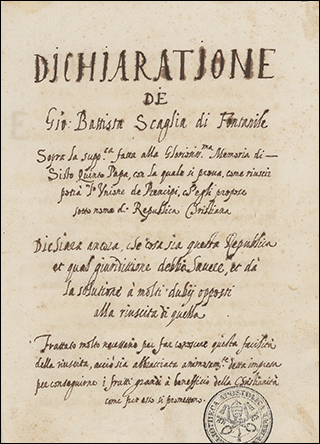 DICHIARATIONE
DE
Gio: Battista Scaglia di Fontanile
Sopra la supp.ca fatta alla Gloriosiss.ma Memoria di
Sisto Quinto Papa, con la quale si prova, come riuscir
potrà l'Unione de Prencipi, ch'egli propose
sotto nome di Republica Christiana
Dichiara ancora, che cosa sia questa Republica
et qual giurisdittione debbe havere, et dà
la solutione à molti dubij opposti
alla riuscita di quella
Trattato molto necessario per far conoscere questa facilità
della riuscita, acciò sia abbracciata animosam.te detta impresa
per conseguirne i frutti grandi à beneficio della Christianità
come per esso si promettono.
APOSTOLICA